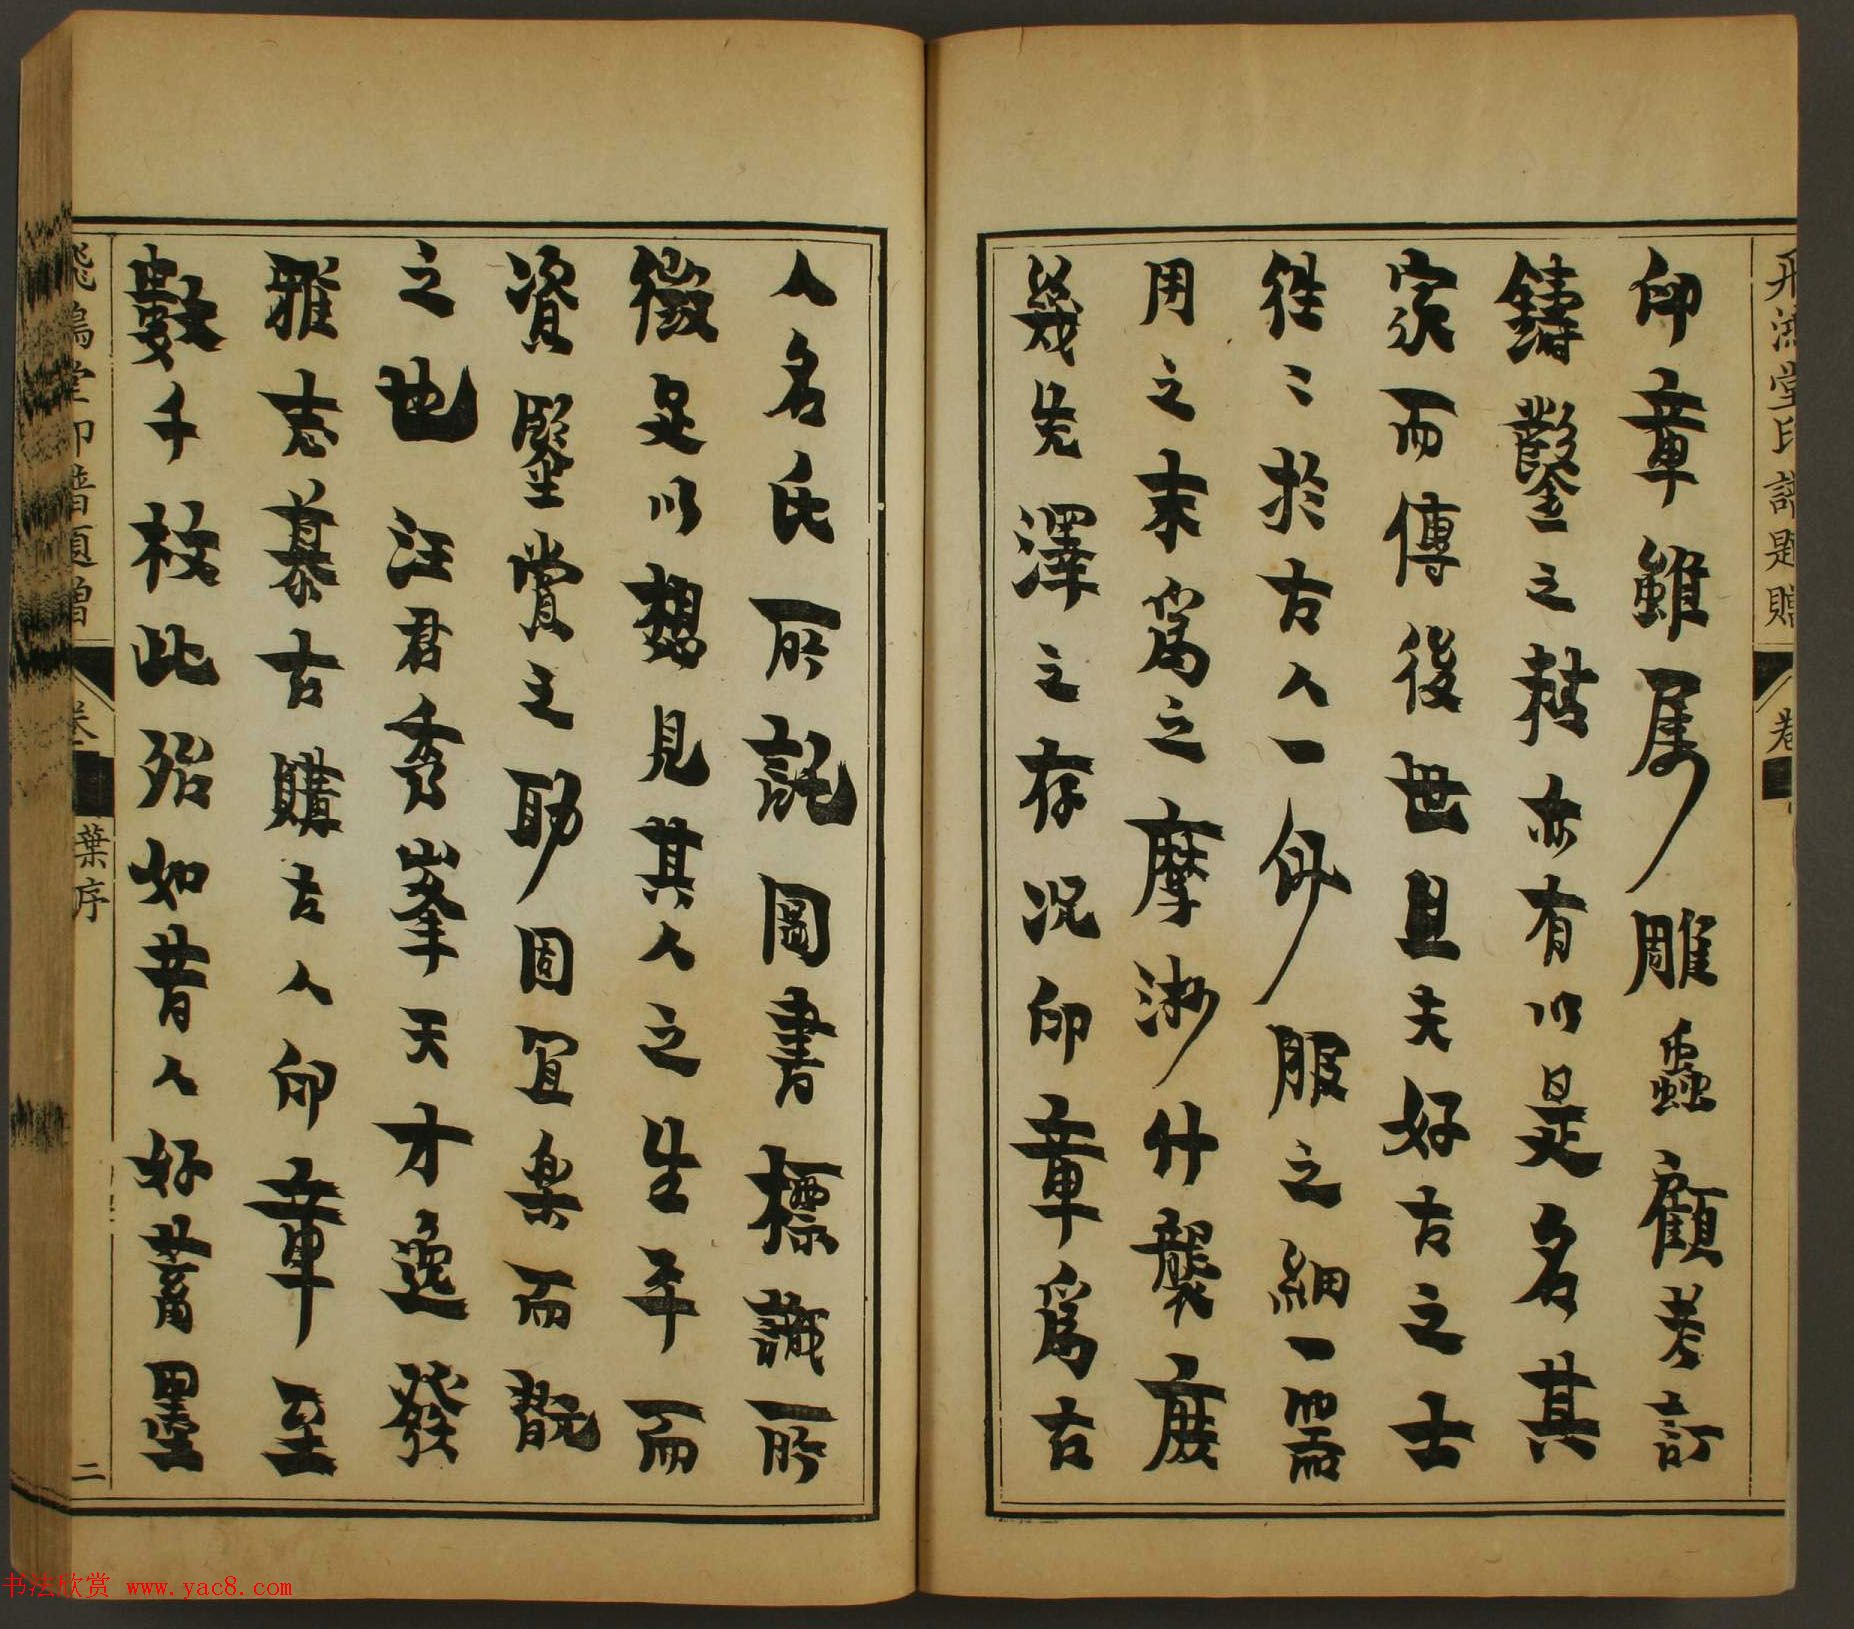 飛鴻堂印譜題贈 卷
印章雖属雕蟲顧考訂
鑄鑿之精亦有以是名其
家而傳後世且夫好古之士
徃〻於古人一身服之細一器
用之末爲之摩沙什襲庶
幾先澤之存况印章爲古
人名氏所託圖書標識所
徵足以想見其人之生平而
資鑒賞之助固宜楽而翫
之也 汪君秀峯天才逸發
雅志慕古購古人印章至
數千枚此殆如昔人好蓄墨
飛鴻堂印譜題贈 卷 葉序 二
书法欣赏 www.yac8.com